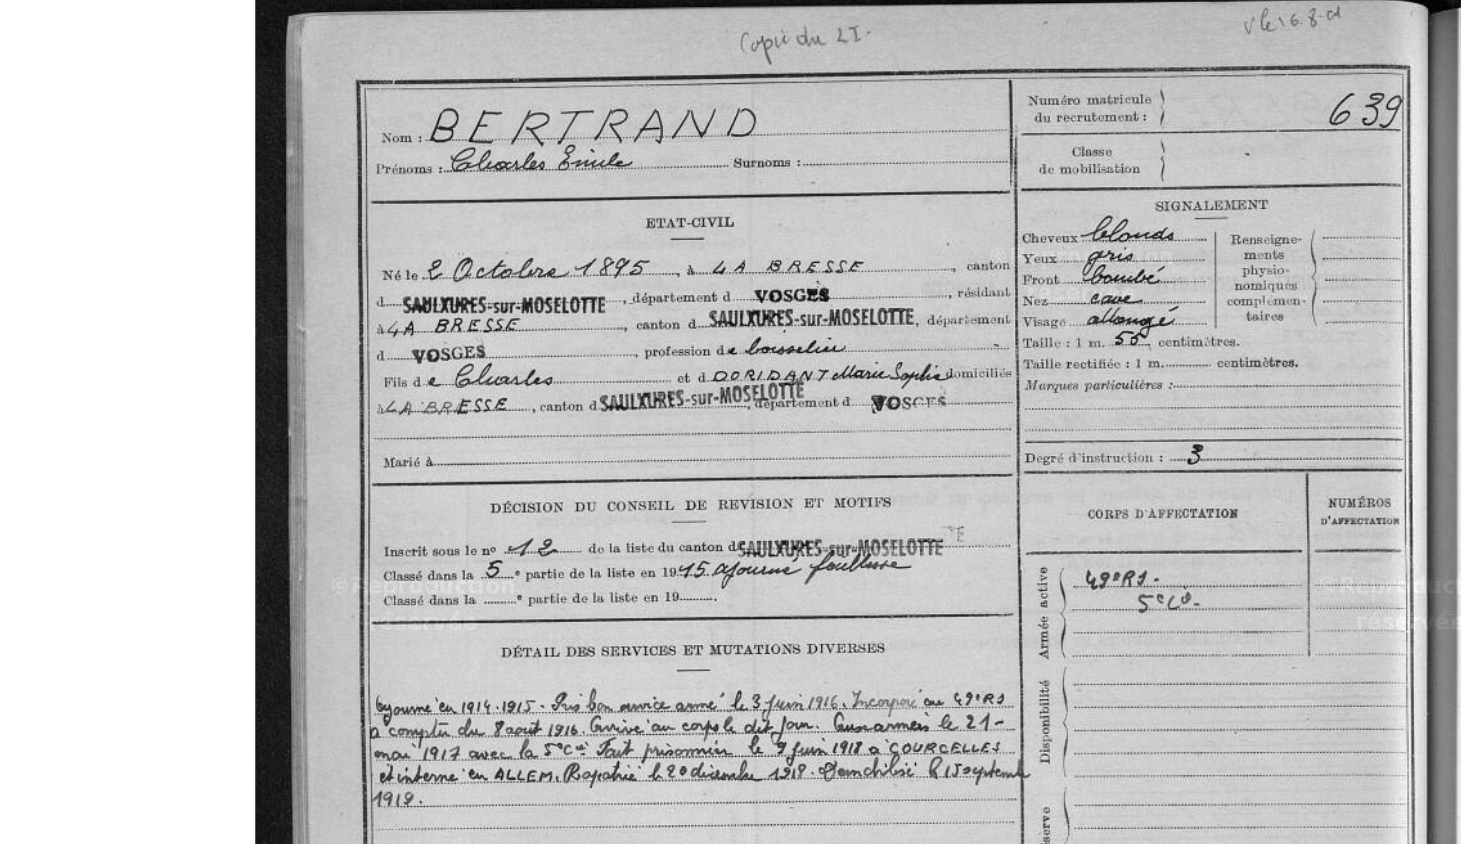 Copie du 2I.
Nom : BERTRAND
Prénoms : Charles Emile Surnoms :
Numéro matricule du recrutement : 639
Classe de mobilisation
ETAT-CIVIL
Né le 2 Octobre 1895, à LA BRESSE, canton
d SAULXURES-sur-MOSELOTTE, département d VOSGES, résidant
à LA BRESSE, canton d SAULXURES-sur-MOSELOTTE, département
d VOSGES, profession de boisselier
Fils de Charles et d DORIDANT Marie Sophie domiciliés
à LA BRESSE, canton d SAULXURES-sur-MOSELOTTE, département d VOSGES
Marié à
SIGNALEMENT
Cheveux blonds
Yeux gris
Front bombé
Nez cave
Visage allongé
Renseigne-
ments
physio-
nomiques
complémen-
taires
Taille : 1 m. 55 centimètres.
Taille rectifiée : 1 m. centimètres.
Marques particulières :
Degré d'instruction : 3
DÉCISION DU CONSEIL DE REVISION ET MOTIFS
Inscrit sous le nº 12 de la liste du canton d SAULXURES-sur-MOSELOTTE
Classé dans la 5e partie de la liste en 1915 ajourné faiblesse
Classé dans la e partie de la liste en 19 .
CORPS D'AFFECTATION
NUMÉROS
D'AFFECTATION
Armée active
49e RI.
5e Cie.
Disponibilité
DÉTAIL DES SERVICES ET MUTATIONS DIVERSES
Ajourné en 1914-1915. Pris bon service armé le 3 Juin 1916. Incorporé au 49e RI
à compter du 8 août 1916. Arrivé au corps le dit jour. Aux armées le 21
mai 1917 avec la 5e Cie. Fait prisonnier le 9 Juin 1918 à COURCELLES
et interné en ALLEM. Rapatrié le 20 décembre 1918. Démobilisé le 15 septemb
1919.
©Reproduction
réservée